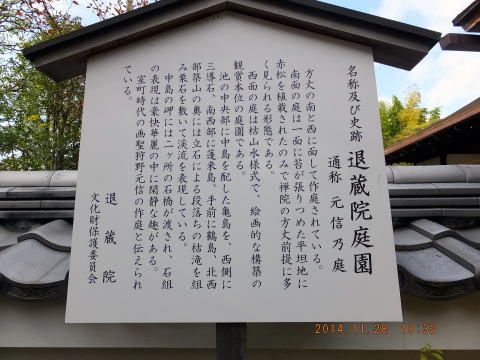 名称及び史跡 退蔵院庭園
通称 元信乃庭
方丈の南と西に面して作庭されている。
南面の庭は一面に苔が張りつめた平坦地に
赤松を植栽されたのみで禅院の方丈前提に多
く見られる形態である。
西面の庭は枯山水様式で、絵画的な構築の
観賞本位の庭園である。
池の中央部に中島を配した亀島を、西側に
三導石、南西部に蓬来島、手前に鶴島、北西
部築山の奥には立石による段落ちの枯滝を組
み栗石を敷いて渓流を表現している。
中島の岬には二ヶ所の石橋が渡され、石組
の表現は豪快華麗の中に閑静な趣がある。
室町時代の画聖狩野元信の作庭と伝えられ
ている。
退蔵院
文化財保護委員会
2014.11.28 10:32